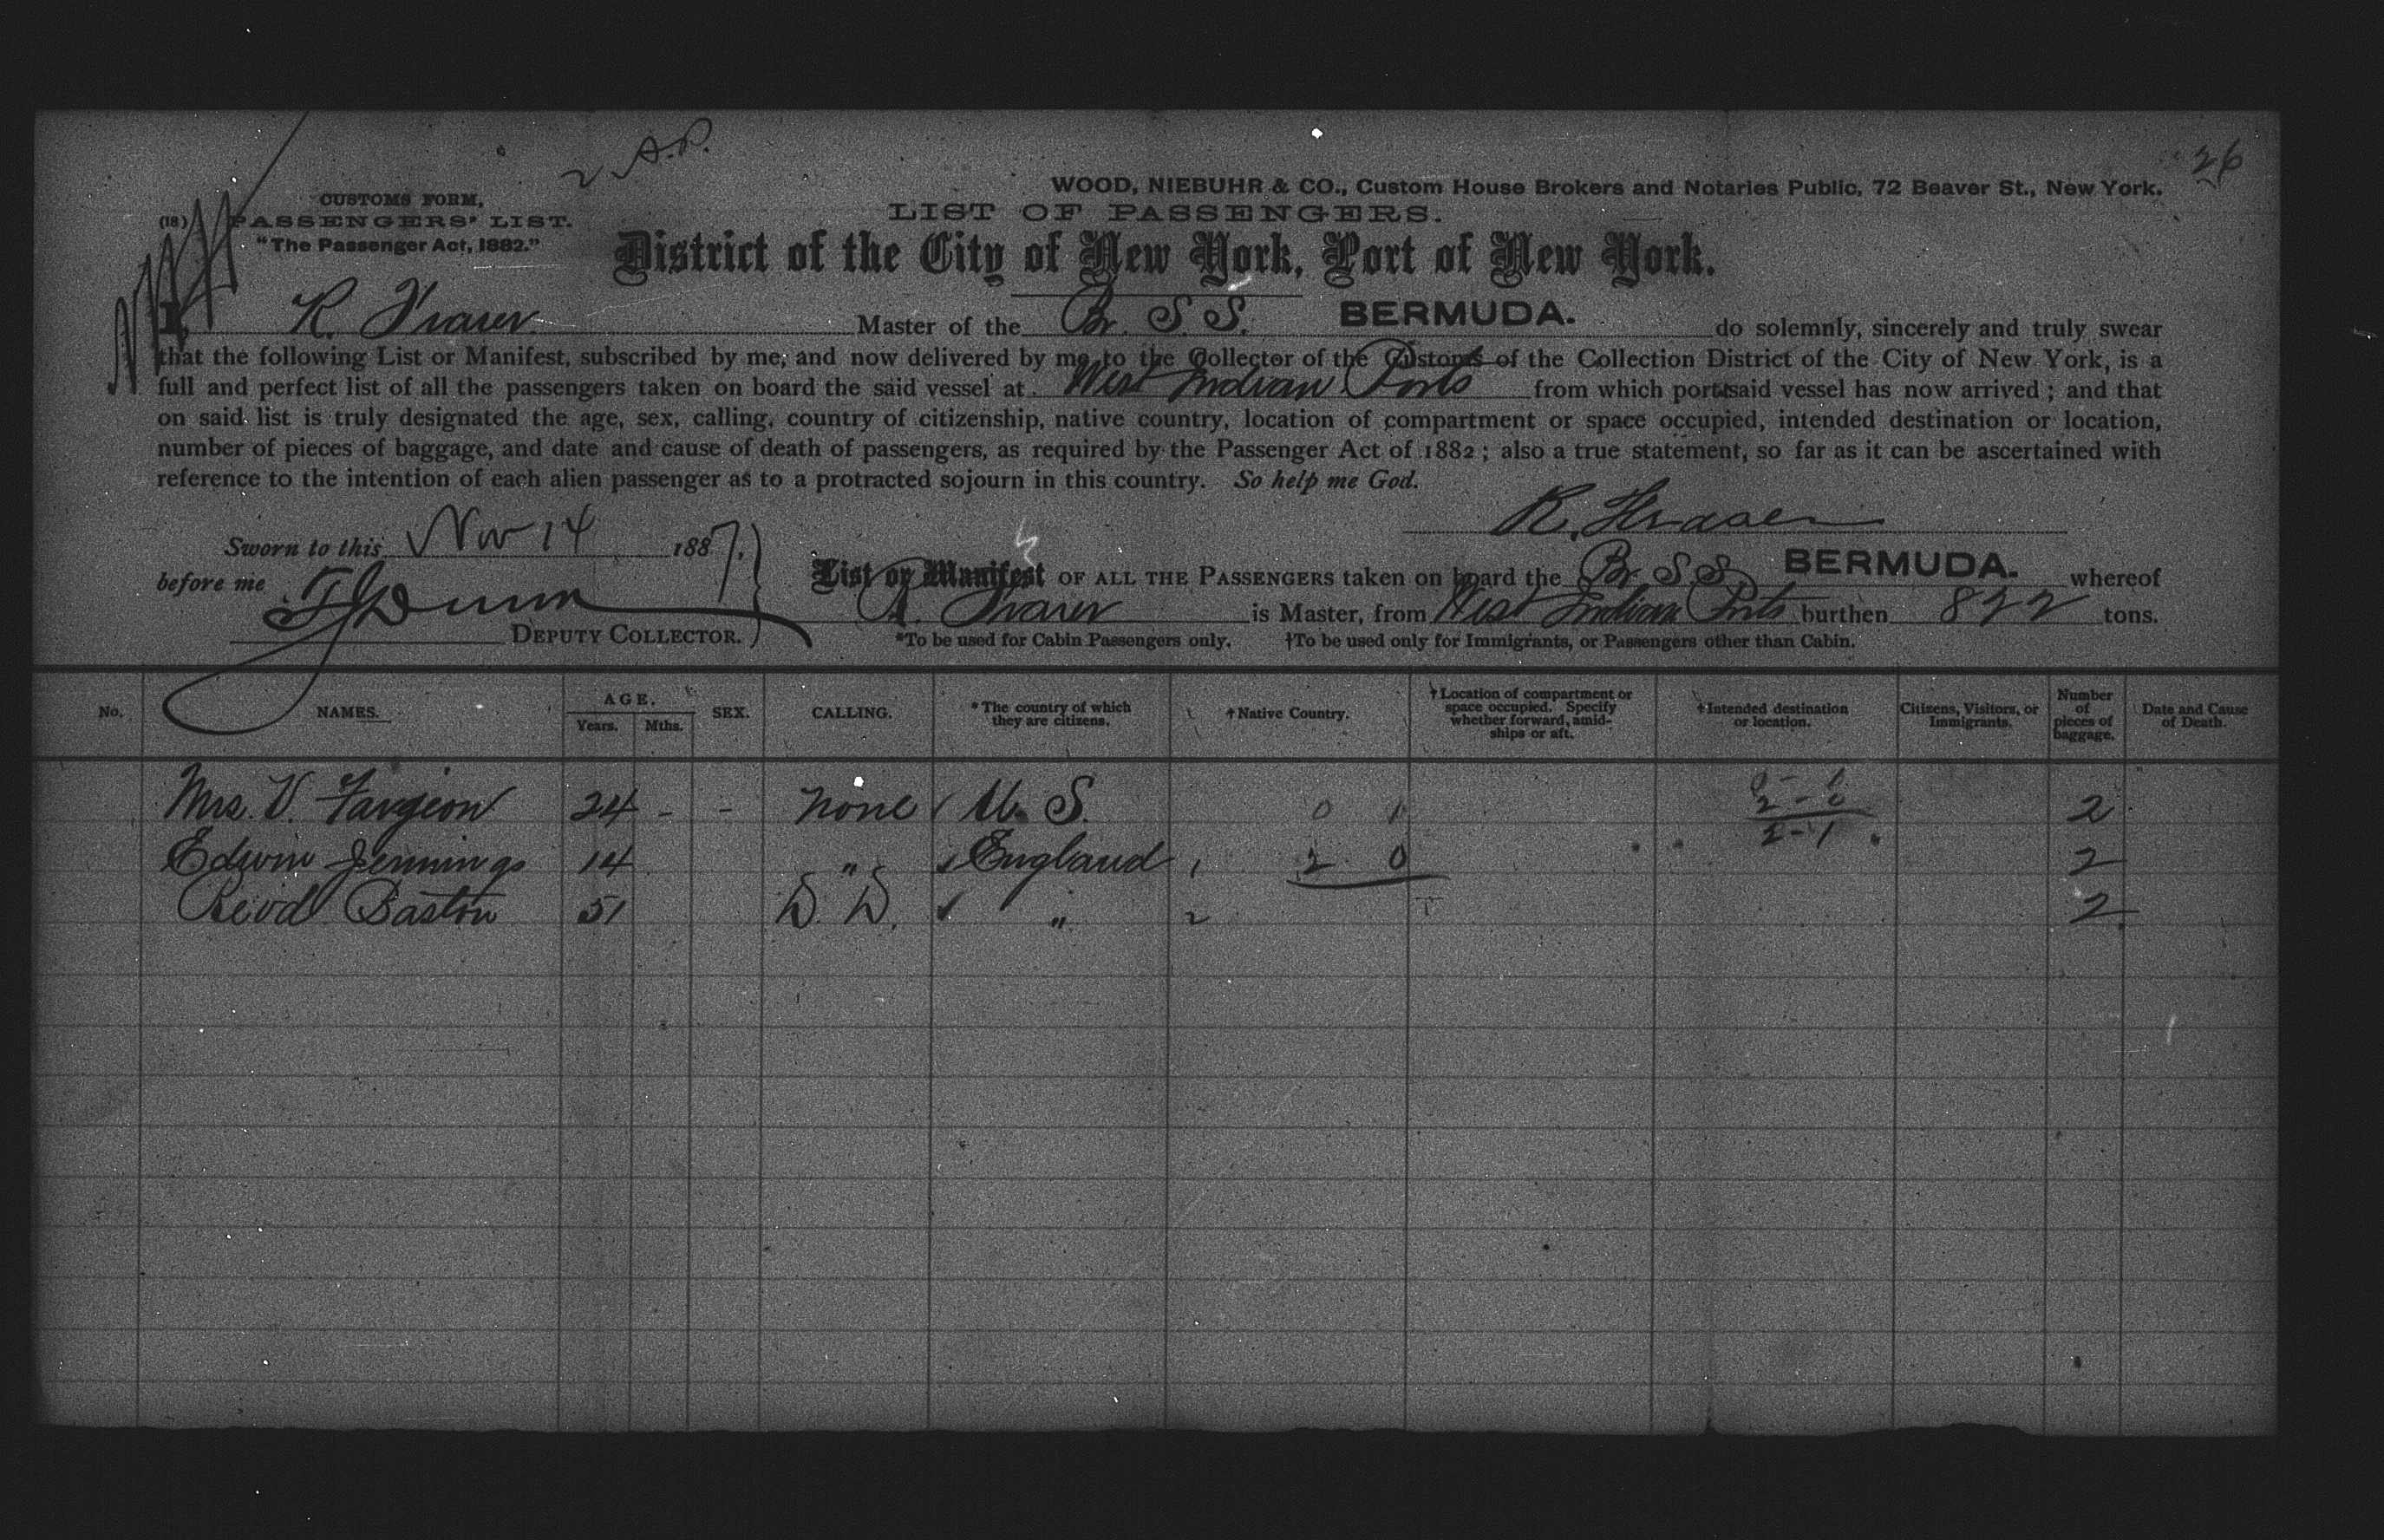 2 S.P.
26
WOOD, NIEBUHR & CO., Custom House Brokers and Notaries Public, 72 Beaver St., New York.
CUSTOMS FORM,
(18) PASSENGERS' LIST.
"The Passenger Act, 1882."
LIST OF PASSENGERS.
District of the City of New York, Port of New York.
I, R. Fraser Master of the Br. S. S. BERMUDA. do solemnly, sincerely and truly swear
that the following List or Manifest, subscribed by me, and now delivered by me to the Collector of the Customs of the Collection District of the City of New York, is a
full and perfect list of all the passengers taken on board the said vessel at West Indian Ports from which port said vessel has now arrived; and that
on said list is truly designated the age, sex, calling, country of citizenship, native country, location of compartment or space occupied, intended destination or location,
number of pieces of baggage, and date and cause of death of passengers, as required by the Passenger Act of 1882; also a true statement, so far as it can be ascertained with
reference to the intention of each alien passenger as to a protracted sojourn in this country. So help me God.
R. Fraser
Sworn to this Nov 14 1887.
before me
DEPUTY COLLECTOR.
List or Manifest OF ALL THE PASSENGERS taken on board the Br. S.S. BERMUDA. whereof
R. Fraser is Master, from West Indian Ports burthen 822 tons.
*To be used for Cabin Passengers only. †To be used only for Immigrants, or Passengers other than Cabin.
No. NAMES. AGE. Years. Mths. SEX. CALLING. *The country of which they are citizens. †Native Country. †Location of compartment or space occupied. Specify whether forward, amidships or aft. †Intended destination or location. Citizens, Visitors, or Immigrants. Number of pieces of baggage. Date and Cause of Death.
Mrs. V. Fargeon 24 - - None U. S. 0 1 2
2 - 0
2 - 1
Edwin Jennings 14 " England 1 2 0 2
Revd Baston 51 D. D. " 2 2